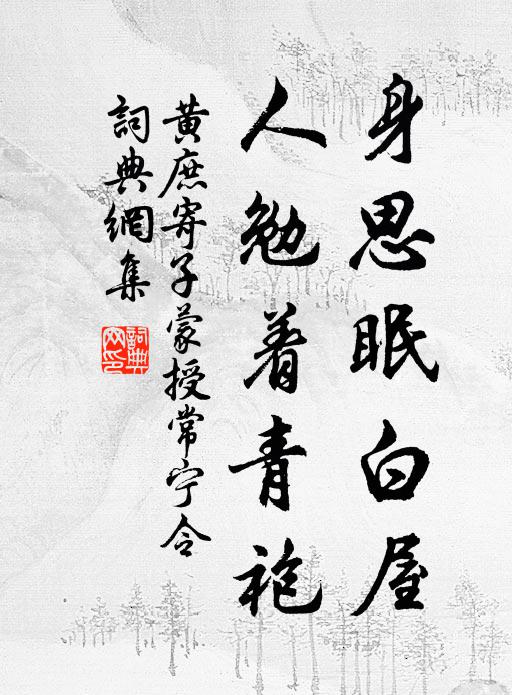 身思眠白屋
人勉着青袍
黄庶寄子蒙授常宁令
詞典網集
詞典網印